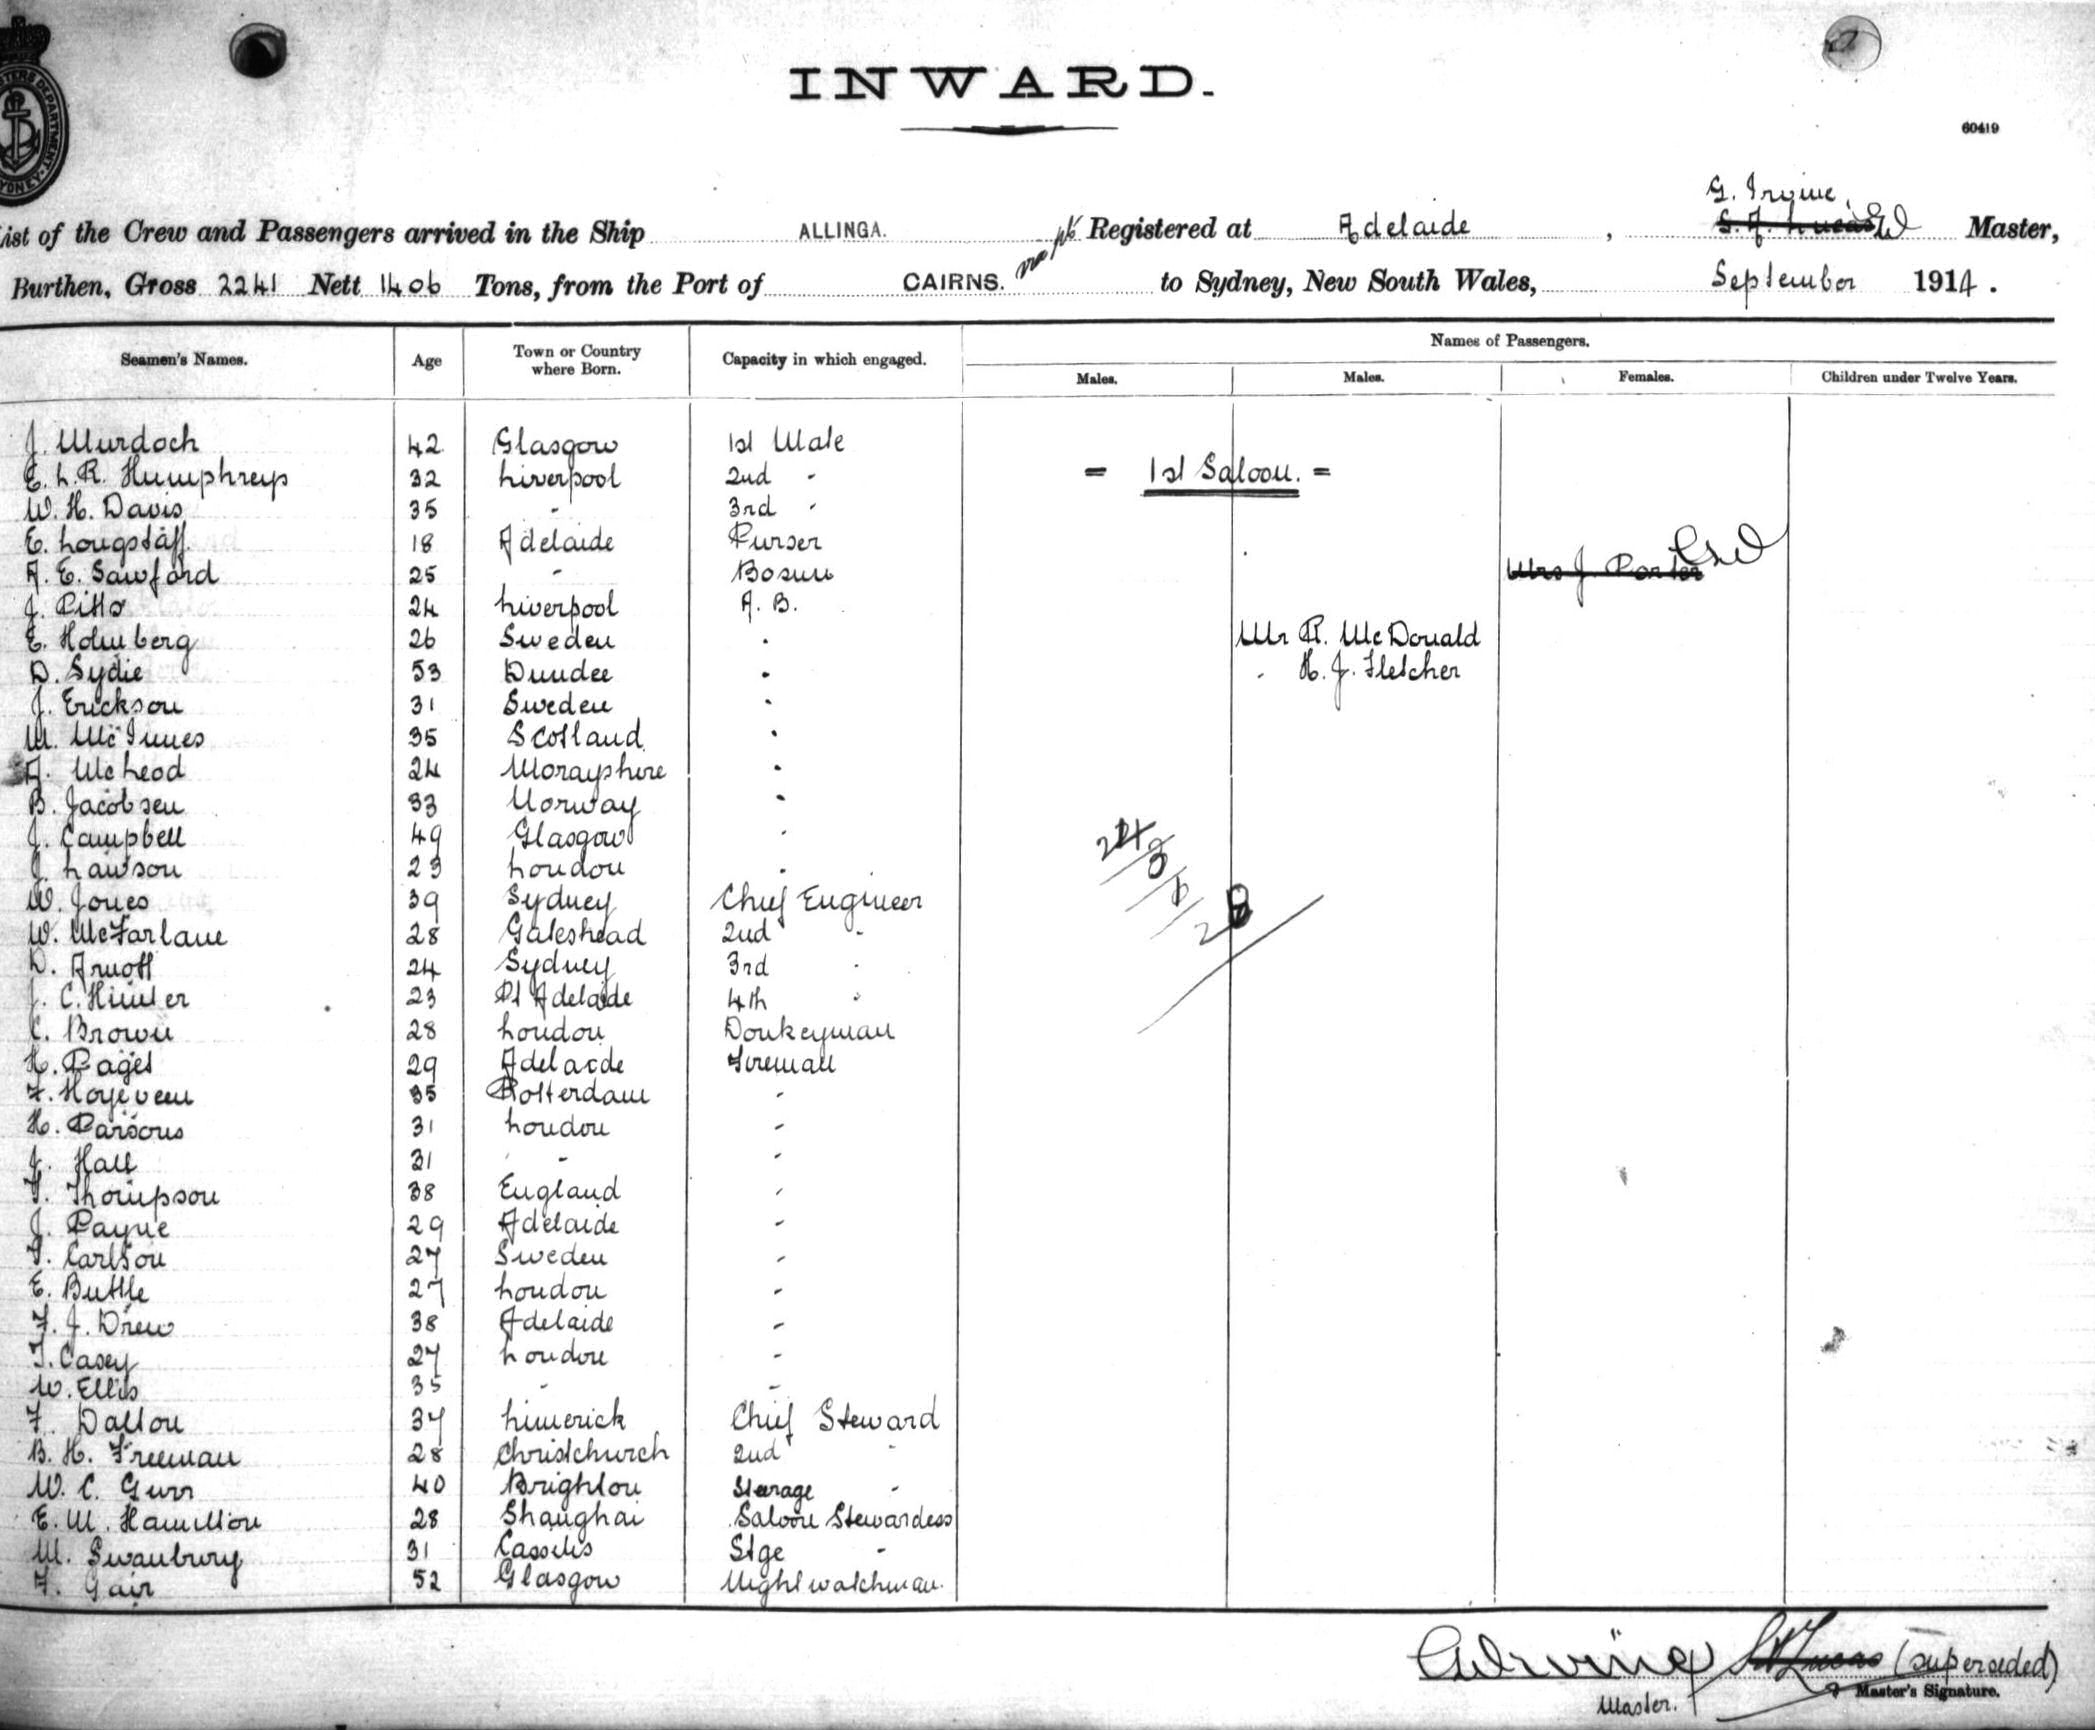 INWARD.
60419
G. Irvine,
List of the Crew and Passengers arrived in the Ship ALLINGA. Registered at Adelaide, S. A. Lucas Master,
Burthen, Gross 2241 Nett 1406 Tons, from the Port of CAIRNS. to Sydney, New South Wales, September 1914.
Seamen's Names. Age Town or Country where Born. Capacity in which engaged. Names of Passengers.
Males. Males. Females. Children under Twelve Years.
J. Murdoch 42 Glasgow 1st Mate
= 1st Saloon. =
E. L. R. Humphreys 32 Liverpool 2nd "
W. H. Davis 35 " 3rd "
E. Longstaff 18 Adelaide Purser
A. E. Sawford 25 " Bosun Mrs J. Porter
J. Pitts 24 Liverpool A. B.
E. Holmberg 26 Sweden " Mr R. McDonald
D. Sydie 53 Dundee " " H. J. Fletcher
J. Erickson 31 Sweden "
M. McInnes 35 Scotland "
A. McLeod 24 Morayshire "
B. Jacobsen 33 Norway "
J. Campbell 49 Glasgow "
J. Lawson 23 London "
W. Jones 39 Sydney Chief Engineer
W. McFarlane 28 Gateshead 2nd "
D. Arnott 24 Sydney 3rd "
J. C. Hunter 23 Pt Adelaide 4th "
C. Brown 28 London Donkeyman
H. Paget 29 Adelaide Fireman
F. Hoyeveen 35 Rotterdam "
H. Parsons 31 London "
J. Hall 31 " "
T. Thompson 38 England "
J. Payne 29 Adelaide "
T. Carlson 27 Sweden "
E. Buttle 27 London "
F. J. Drew 38 Adelaide "
T. Casey 27 London "
W. Ellis 35 " "
F. Dalton 37 Limerick Chief Steward
B. H. Freeman 28 Christchurch 2nd "
W. C. Gurr 40 Brighton Steerage "
E. M. Hamilton 28 Shanghai Saloon Stewardess
M. Swanbury 31 Cassilis Stge "
F. Gair 52 Glasgow Nightwatchman.
G Irvine S A Lucas (superseded)
Master. Master's Signature.